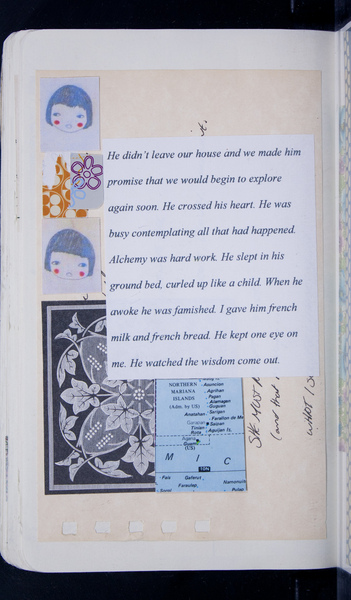 He didn't leave our house and we made him
promise that we would begin to explore
again soon. He crossed his heart. He was
busy contemplating all that had happened.
Alchemy was hard work. He slept in his
ground bed, curled up like a child. When he
awoke he was famished. I gave him french
milk and french bread. He kept one eye on
me. He watched the wisdom come out.
NORTHERN
MARIANA
ISLANDS
(Adm. by US)
Asuncion
Agrihan
Pagan
Alamagan
Guguan
Sarigan
Anatahan
Farallon de Me
Saipan
Tinian
Rota
Aguijan Is.
Agana
Guam
(US)
M I C
10N
Pais
Gaferut
Faraulep
Namonuito
Sorol
Pulap
SHE MUST